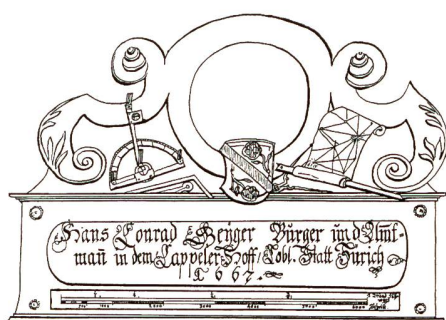 Hans Conrad Geiger Burger und Amt-
mañ in dem Cappeler Hoff/ Lobl. Statt Zürich
1667.